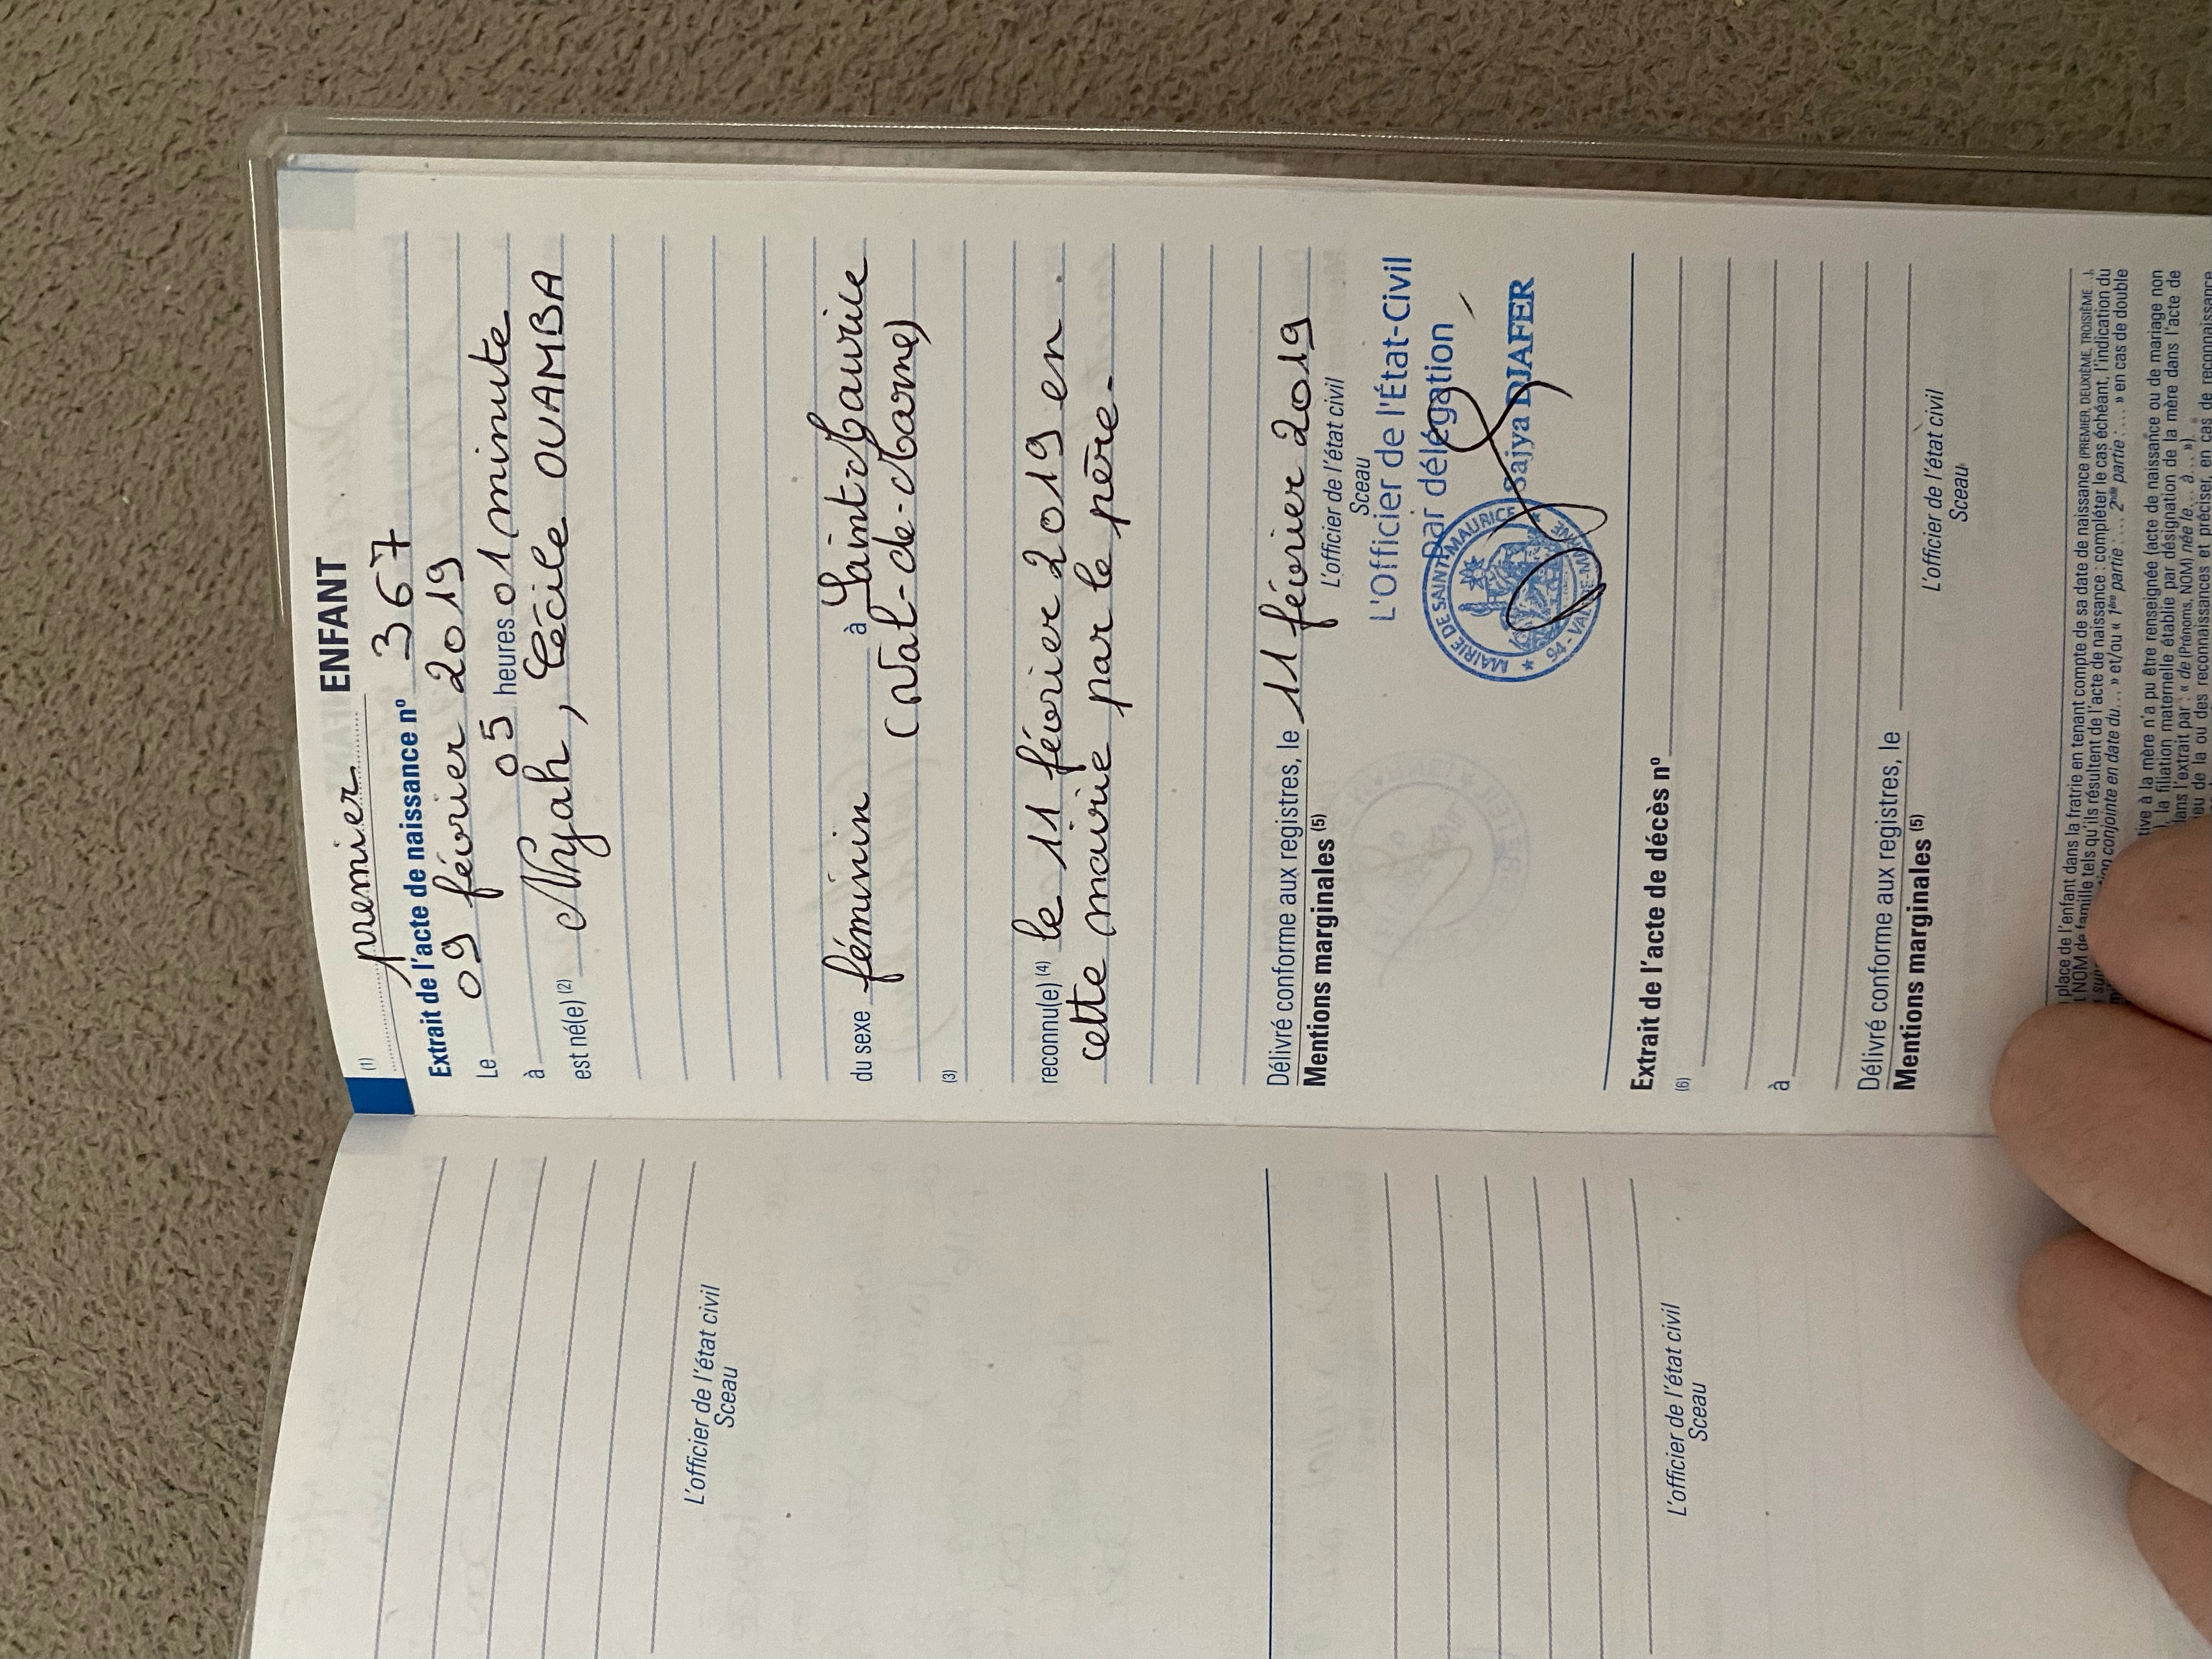 (1) premier ENFANT
Extrait de l'acte de naissance n° 367
Le 09 février 2019
à 05 heures 01 minute
est né(e) (2) Nyah, Cécile OUAMBA
du sexe féminin à Saint-Maurice
(Val-de-Marne)
(3)
reconnu(e) (4) le 11 février 2019 en
cette mairie par le père.
Délivré conforme aux registres, le 11 février 2019
Mentions marginales (5)
L'officier de l'état civil
Sceau
L'Officier de l'État-Civil
par délégation
Sajya DJAFER
MAIRIE DE SAINT-MAURICE
94 - VAL-DE-MARNE
Extrait de l'acte de décès n°
(6)
à
Délivré conforme aux registres, le
Mentions marginales (5)
L'officier de l'état civil
Sceau
place de l'enfant dans la fratrie en tenant compte de sa date de naissance (PREMIER, DEUXIÈME, TROISIÈME...).
NOM de famille tels qu'ils résultent de l'acte de naissance : compléter le cas échéant, l'indication du
conjointe en date du... » et/ou « 1ère partie : ... 2ème partie : ... » en cas de double
à la mère n'a pu être renseignée (acte de naissance ou de mariage non
la filiation maternelle établie par désignation de la mère dans l'acte de
l'extrait par : « de (Prénoms, NOM) née le... à... »).
de la ou des reconnaissances et préciser, en cas de reconnaissance
L'officier de l'état civil
Sceau
L'officier de l'état civil
Sceau